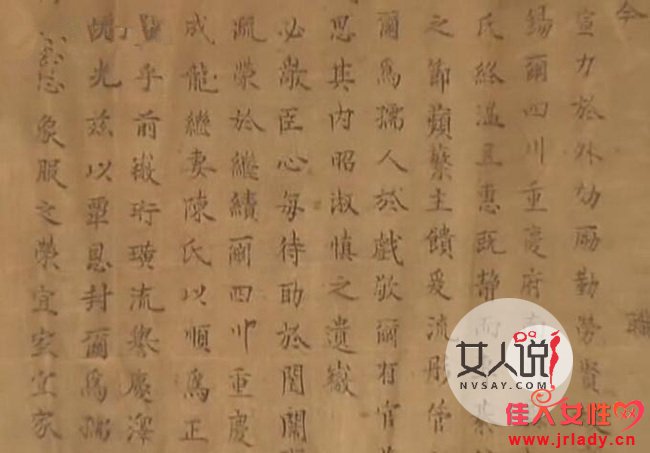 今
宣力於外劼勵勤勞賢
錫爾四川重慶府
氏終溫且惠既靜而
之節蘋蘩主饋爰流彤管
爾為孺人於戲敬爾有官
思其內昭淑慎之遺徽
必敬臣心每待助於閨闈
榮於繼續爾四川重慶
成龍繼妻陳氏以順為正
乎前徽珩璜流譽慶澤
光茲以覃恩封爾為孺
象服文榮宜室宜家
女人说
NVSAY.COM
佳人女性网
www.jrlady.cn